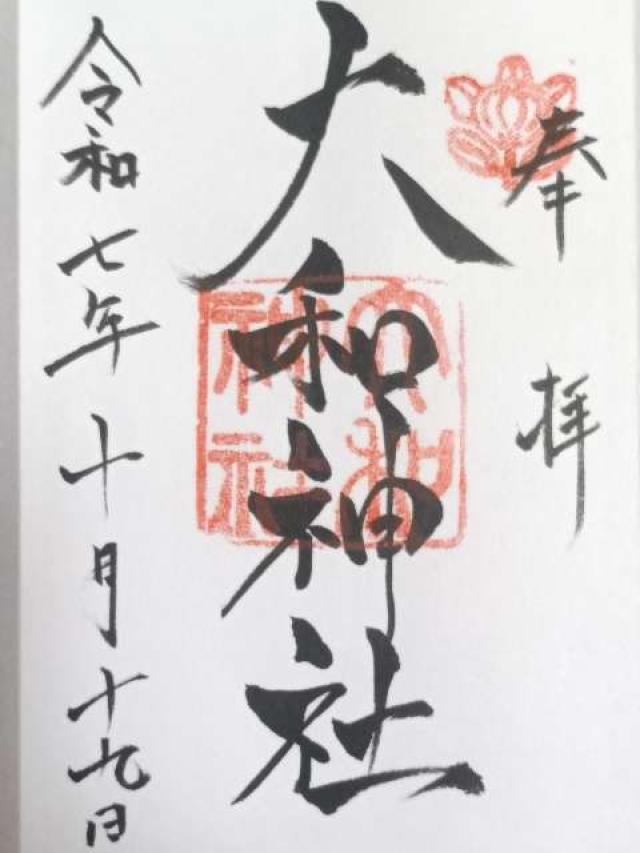 奉拝
大和神社
大和
神社
令和七年十月十九日